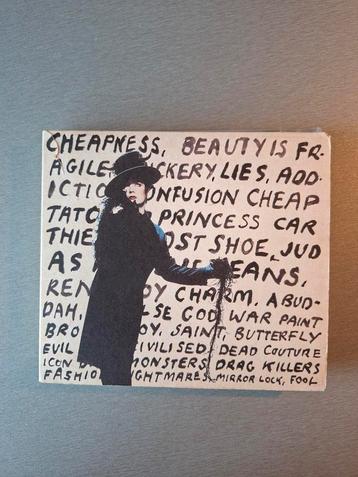 CHEAPNESS, BEAUTY IS FR-
AGILE, CKERY, LIES, ADD-
ICTIO ONFUSION CHEAP
TATO PRINCESS CAR
THIE OST SHOE, JUD
AS EANS,
REN OY CHARM, A BUD-
DAH, LSE GOD, WAR PAINT
BRO OY, SAINT, BUTTERFLY
EVIL IVILISED, DEAD COUTURE
ICON D MONSTERS, DRAG KILLERS
FASHIO IGHTMARES, MIRROR LOCK, FOOL